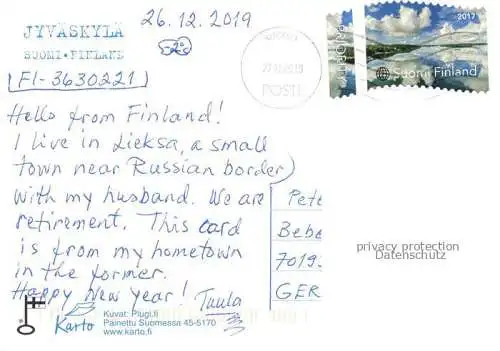 JYVÄSKYLÄ
SUOMI-FINLAND
FI-3630221
26.12.2019
2°
POSTI
2017
Suomi Finland
Hello from Finland!
I live in Lieksa, a small
town near Russian border
with my husband. We are
retirement. This card
is from my hometown
in the former.
Happy New year! Tuula
Pete
Bebe
7019
GER
privacy protection
Datenschutz
Karto
Kuvat: Plugi.fi
Painettu Suomessa 45-5170
www.karto.fi